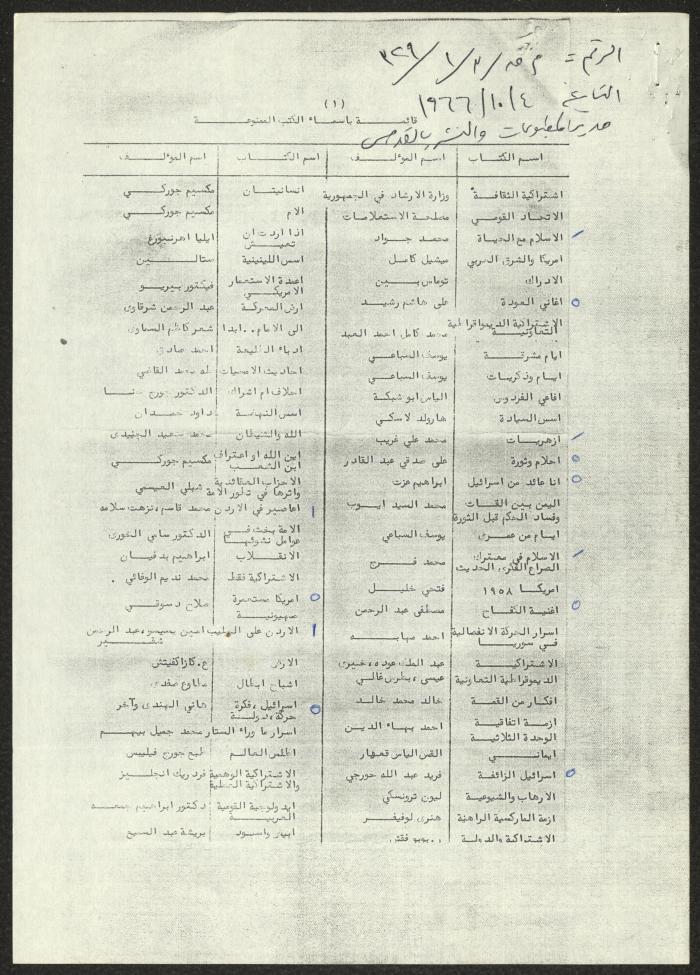 الرقم = م ق / ٣ / ١ / ٣٢٩
التاريخ ٤ / ١٠ / ١٩٦٦
مدير المطبوعات والنشر بالقدس
(١)
قائمة باسماء الكتب الممنوعة
اسم الكتاب اسم المؤلف اسم الكتاب اسم المؤلف
اشتراكية الثقافة وزارة الارشاد في الجمهورية انسانيتان مكسيم جوركي
الاتحاد القومي مصلحة الاستعلامات الام مكسيم جوركي
الاسلام مع الحياة محمد جواد اذا اردت ان تعيش ايليا اهرنبورغ
امريكا والشرق العربي ميشيل كامل اسس اللينينية ستالين
الادراك توماس بين اعمدة الاستعمار الامريكي فيكتور بيرلو
اغاني العودة علي هاشم رشيد ارض المعركة عبد الرحمن شرقاوي
الاشتراكية الديموقراطية التعاونية محمد كامل احمد العبد الى الامام..ابدا شعر كاظم السماوي
ايام مشرقة يوسف السباعي ادباء الطليعة احمد صادق
ايام وذكريات يوسف السباعي احاديث الامسيات محمد القاضي
افاعي الفردوس الياس ابو شبكة احلاف ام اشراك الدكتور جورج حنا
اسس السيادة هارولد لاسكي اسس النهضة داود حمدان
ازهريات محمد علي غريب الله والشيطان محمد سعيد الجنيدي
احلام وثورة علي صدقي عبد القادر ابن الله او اعتراف ابن الشعب مكسيم جوركي
انا عائد من اسرائيل ابراهيم عزت الاحزاب العقائدية واثرها في تطور الامة شبلي العيسمي
اليمن بين القات وفساد الحكم قبل الثورة محمد السيد ايوب اعاصير في الاردن محمد قاسم، نزهت سلامه
ايام من عمري يوسف السباعي الامة بحث في عوامل نشوئها الدكتور سامي الخوري
الاسلام في معترك الصراع الفكري الحديث محمد فرج الانقلاب ابراهيم بدفيان
امريكا ١٩٥٨ فتحي خليل الاشتراكية فقط محمد نديم الوفائي
اغنية الكفاح مصطفى عبد الرحمن امريكا مستعمرة صهيونية صلاح دسوقي
اسرار الحركة الانفصالية في سوريا احمد مهابه الاردن على الصليب امين بسيسو، عبد الرحمن شقير
الاشتراكية الديموقراطية التعاونية عبد الملك عوده، خيري عيسى، بطرس غالي الارض ع. كازاكفيتش
اشباح ابطال مطاوع صفدي
افكار من القمة خالد محمد خالد اسرائيل، فكرة حركة، دولة هاني الهندي وآخر
ازمة اتفاقية الوحدة الثلاثية احمد بهاء الدين اسرار ما وراء الستار محمد جميل بيهم
ايماني القس الياس قعهار اطلس العالم طبع جورج فيليبس
اسرائيل الزائفة فريد عبد الله جورجي الاشتراكية الوهمية والاشتراكية العلمية فردريك انجليز
الارهاب والشيوعية ليون ترونسكي ايدولوجية القومية العربية دكتور ابراهيم جمعه
ازمة الماركسية الراهنة هنري لوفيفر ابيض واسود بريشة عبد السميع
الاشتراكية والدولة